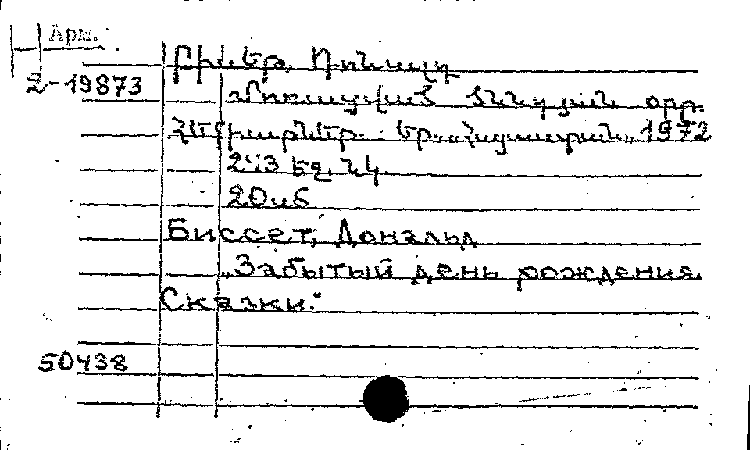 Арм.
2-19873
Բիսեթ, Դոնալդ
Մոռացված ծննդյան օրը.
Հեքիաթներ. Եր., Հայաստան, 1972
էջ. նկ.
20
Биссет, Дональд
„Забытый день рождения.
Сказки."
50438